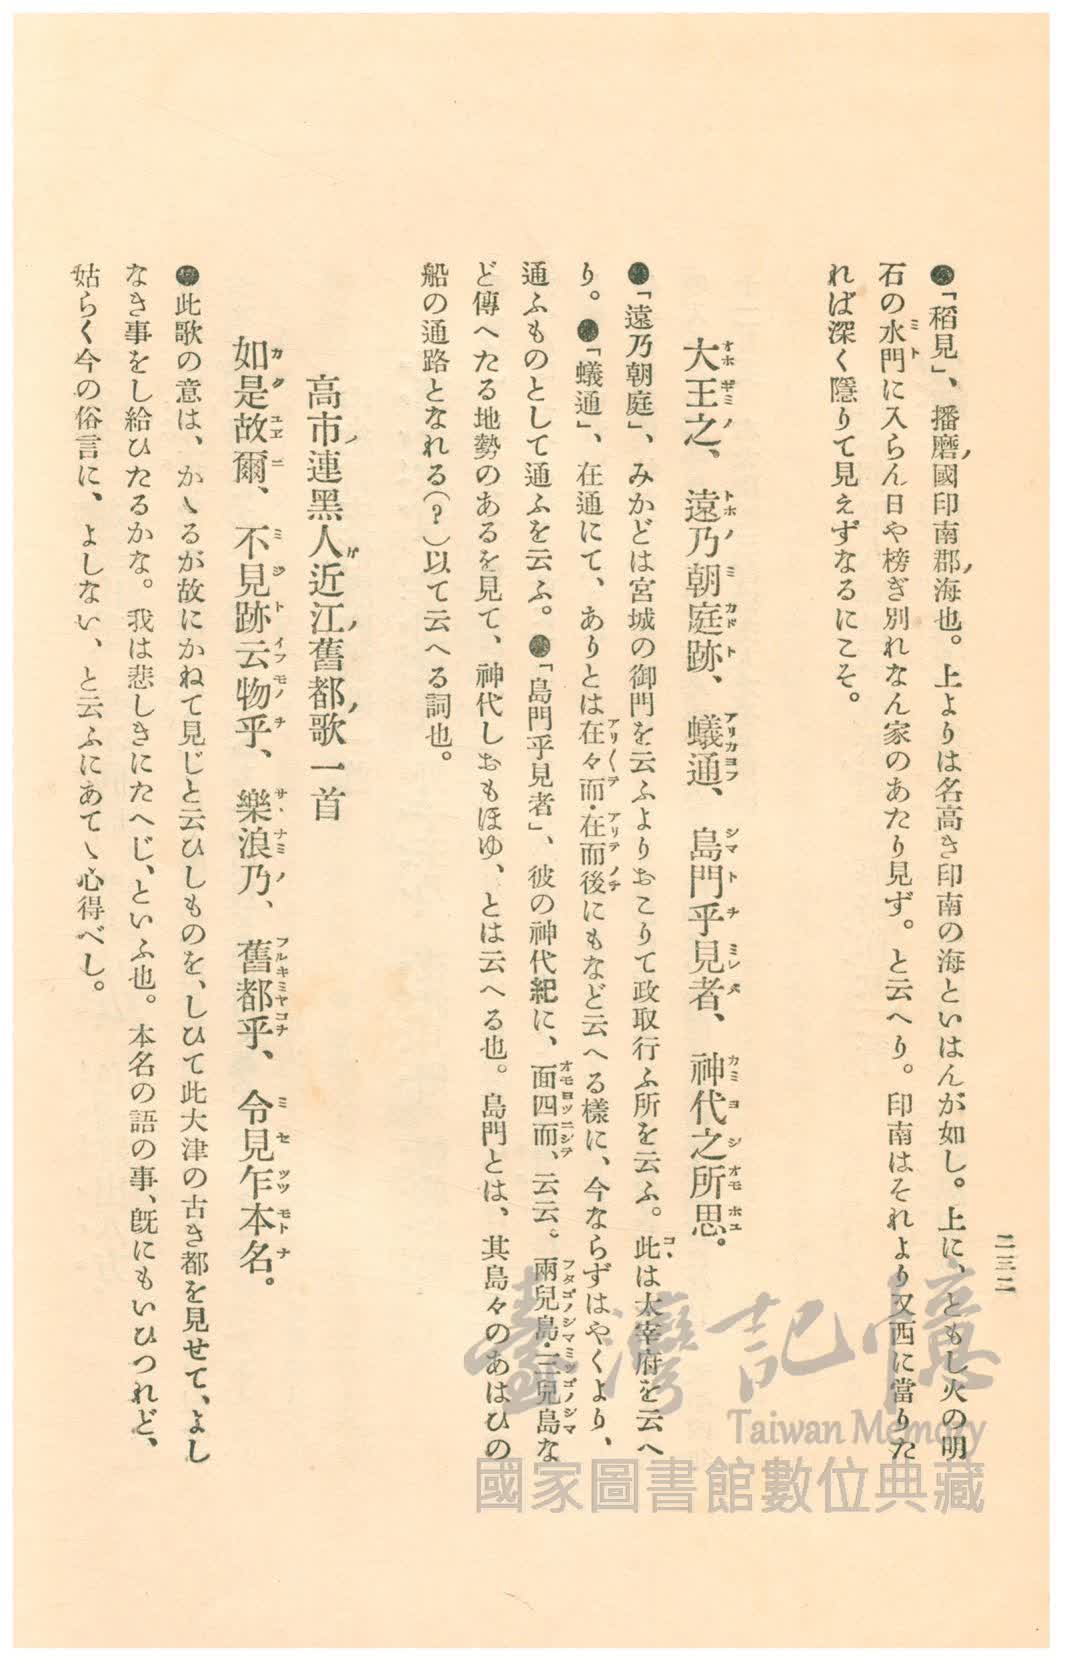 二三二
●「稻見」、播磨ノ國印南郡ノ海也。上よりは名高き印南の海といはんが如し。上に、ともし火の明
石の水門に入らん日や榜ぎ別れなん家のあたり見ず。と云へり。印南はそれより又西に當りた
れば深く隱りて見えずなるにこそ。
大王之、遠乃朝庭跡、蟻通、島門乎見者、神代之所思。
オホギミノ トホノミカドト アリカヨフ シマトヲミレバ カミヨシオモホユ
●「遠乃朝庭」、みかどは宮城の御門を云ふよりおこりて政取行ふ所を云ふ。此は太宰府を云へ
り。●「蟻通」、在通にて、ありとは在々而・在而後にもなど云へる樣に、今ならずはやくより、
通ふものとして通ふを云ふ。●「島門乎見者」、彼の神代紀に、面四而、云云。兩兒島・三兒島な
ど傳へたる地勢のあるを見て、神代しおもほゆ、とは云へる也。島門とは、其島々のあはひの
船の通路となれる(?)以て云へる詞也。
高市ノ連黑人ガ近江ノ舊都ノ歌一首
如是故爾、不見跡云物乎、樂浪乃、舊都乎、令見乍本名。
カクユヱニ ミジトイフモノヲ サヽナミノ フルキミヤコヲ ミセツツモトナ
●此歌の意は、かゝるが故にかねて見じと云ひしものを、しひて此大津の古き都を見せて、よし
なき事をし給ひたるかな。我は悲しきにたへじ、といふ也。本名の語の事、旣にもいひつれど、
姑らく今の俗言に、よしない、と云ふにあてゝ心得べし。
臺灣記憶
Taiwan Memory
國家圖書館數位典藏